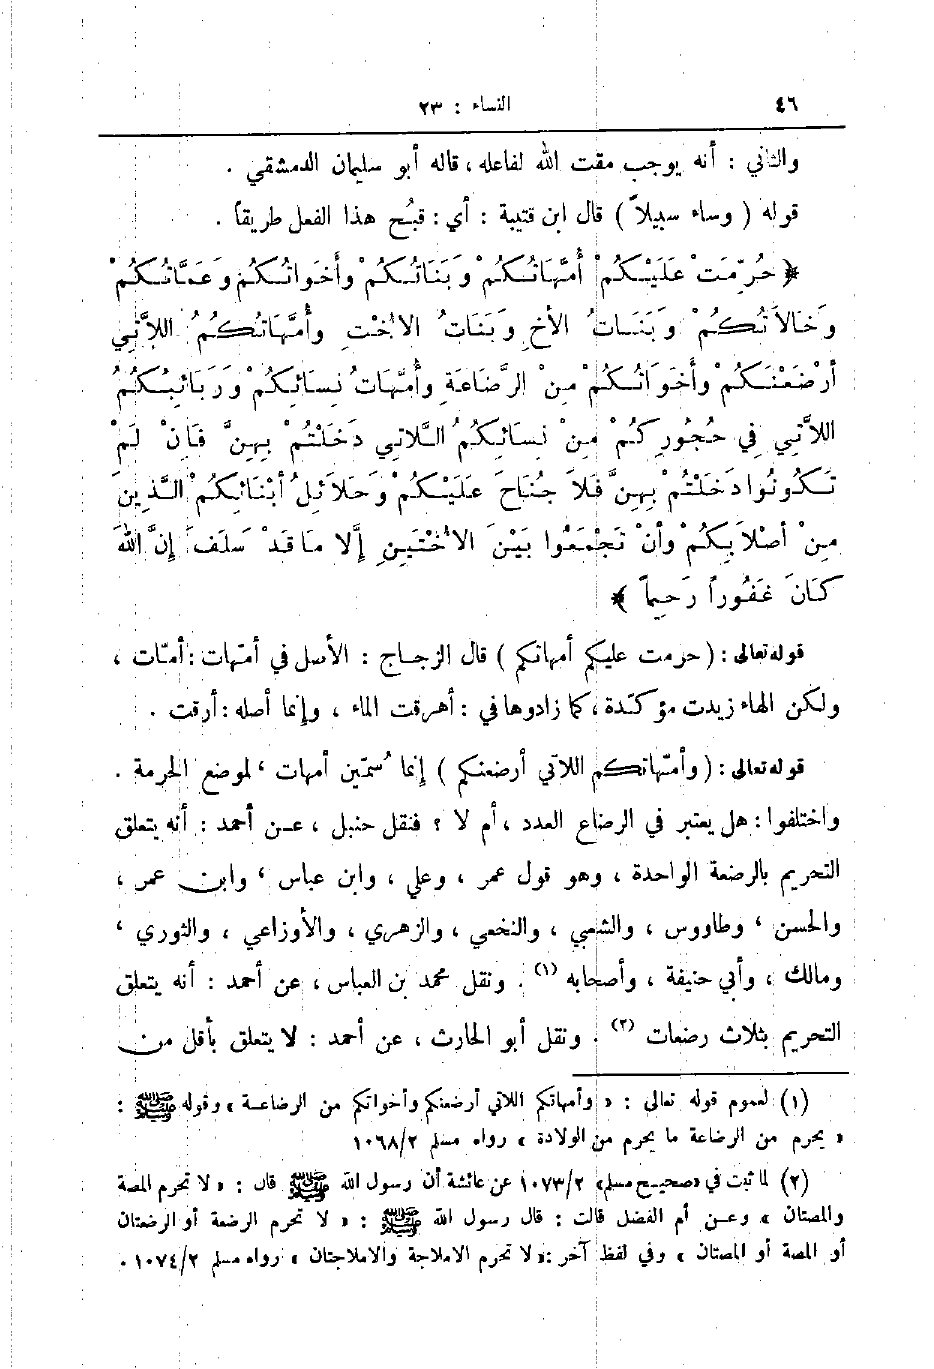 ٤٦ النساء : ٢٣
والثاني : أنه يوجب مقت الله لفاعله ، قاله أبو سليمان الدمشقي .
قوله ( وساء سبيلاً ) قال ابن قتيبة : أي : قبُح هذا الفعل طريقاً .
﴿ حُرِّمَتْ عَلَيْكُمْ أُمَّهَاتُكُمْ وَبَنَاتُكُمْ وأَخَوَاتُكُمْ وَعَمَّاتُكُمْ
وَخَالاَتُكُمْ وَبَنَاتُ الأَخِ وَبَنَاتُ الأُخْتِ وأُمَّهَاتُكُمُ اللاَّتِي
أَرْضَعْنَكُمْ وأَخَوَاتُكُمْ مِنَ الرَّضَاعَةِ وأُمَّهَاتُ نِسَائِكُمْ وَرَبَائِبُكُمُ
اللاَّتِي فِي حُجُورِكُمْ مِنْ نِسَائِكُمُ اللَّاتِي دَخَلْتُمْ بِهِنَّ فَإِنْ لَمْ
تَكُونُوا دَخَلْتُمْ بِهِنَّ فَلاَ جُنَاحَ عَلَيْكُمْ وَحَلاَئِلُ أَبْنَائِكُمُ الَّذِينَ
مِنْ أَصْلاَبِكُمْ وأَنْ تَجْمَعُوا بَيْنَ الأُخْتَيْنِ إِلَّا مَا قَدْ سَلَفَ إِنَّ اللهَ
كَانَ غَفُوراً رَحِيماً ﴾
قوله تعالى : ( حرمت عليكم أمهاتكم ) قال الزجاج : الأصل في أمّهات : أمّات ،
ولكن الهاء زيدت مؤكّدة ، كما زادوها في : أهرقت الماء ، وإنما أصله : أرقت .
قوله تعالى : ( وأمّهاتكم اللاتي أرضعنكم ) إنما سُمّين أمهات ، لموضع الحرمة .
واختلفوا : هل يعتبر في الرضاع العدد ، أم لا ؟ فنقل حنبل ، عن أحمد : أنه يتعلق
التحريم بالرضعة الواحدة ، وهو قول عمر ، وعلي ، وابن عباس ، وابن عمر ،
والحسن ، وطاووس ، والشعبي ، والنخعي ، والزهري ، والأوزاعي ، والثوري ،
ومالك ، وأبي حنيفة ، وأصحابه (١) . ونقل محمد بن العباس ، عن أحمد : أنه يتعلق
التحريم بثلاث رضعات (٢) . ونقل أبو الحارث ، عن أحمد : لا يتعلق بأقل من
(١) لعموم قوله تعالى : « وأمهاتكم اللاتي أرضعنكم وأخواتكم من الرضاعة » وقوله ﷺ :
« يحرم من الرضاعة ما يحرم من الولادة » رواه مسلم ١٠٦٨/٢
(٢) لما ثبت في «صحيح مسلم» ١٠٧٣/٢ عن عائشة أن رسول الله ﷺ قال : « لا تحرم المصة
والمصتان » وعن أم الفضل قالت : قال رسول الله ﷺ : « لا تحرم الرضعة أو الرضعتان
أو المصة أو المصتان » وفي لفظ آخر :« لا تحرم الاملاجة والاملاجتان » رواه مسلم ١٠٧٤/٢ .